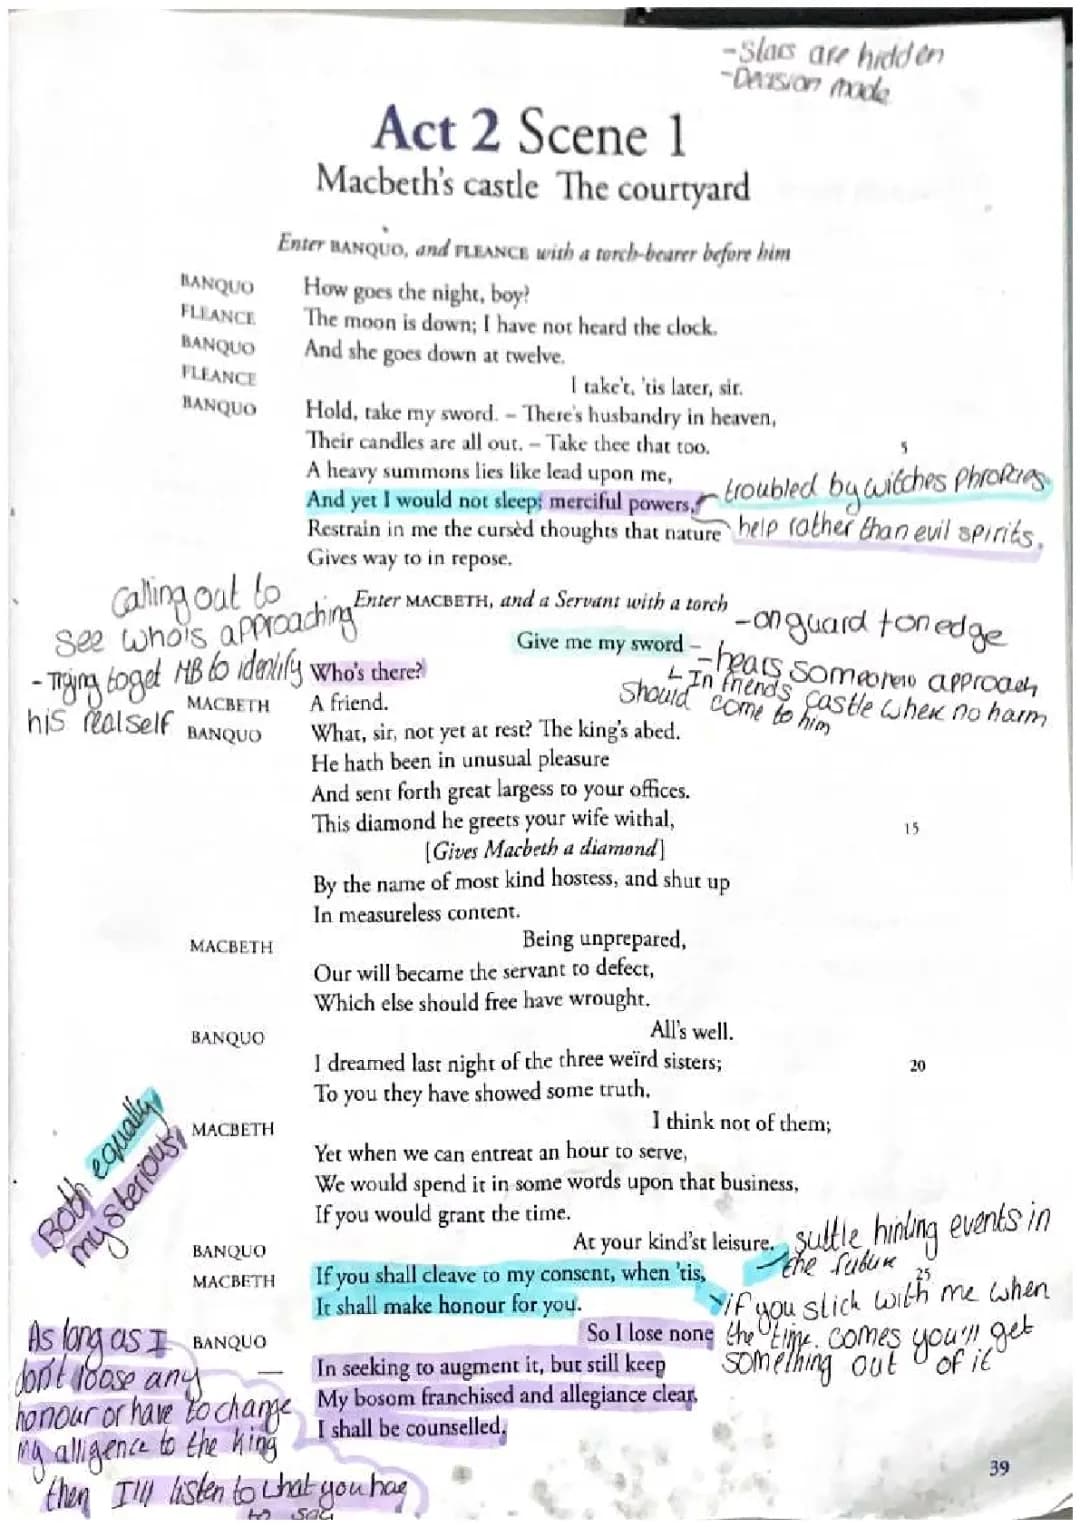 -Stars are hidden
-Decision made
Act 2 Scene 1
Macbeth's castle The courtyard
Enter BANQUO, and FLEANCE with a torch-bearer before him
BANQUO How goes the night, boy?
FLEANCE The moon is down; I have not heard the clock.
BANQUO And she goes down at twelve.
FLEANCE I take't, 'tis later, sir.
BANQUO Hold, take my sword. – There's husbandry in heaven,
Their candles are all out. – Take thee that too. 5
A heavy summons lies like lead upon me,
And yet I would not sleep; merciful powers,
troubled by witches Phrofcies.
Restrain in me the cursèd thoughts that nature
help rather than evil spirits.
Gives way to in repose.
Calling out to
see who's approaching
- Trying to get MB to identify
his real self
Enter MACBETH, and a Servant with a torch
- on guard + on edge
Give me my sword –
- hears someone approach
↳ In friends castle where no harm
should come to him
Who's there?
MACBETH A friend.
BANQUO What, sir, not yet at rest? The king's abed.
He hath been in unusual pleasure
And sent forth great largess to your offices.
This diamond he greets your wife withal, 15
[Gives Macbeth a diamond]
By the name of most kind hostess, and shut up
In measureless content.
MACBETH Being unprepared,
Our will became the servant to defect,
Which else should free have wrought.
BANQUO All's well.
I dreamed last night of the three weïrd sisters; 20
To you they have showed some truth.
MACBETH I think not of them;
Yet when we can entreat an hour to serve,
We would spend it in some words upon that business,
If you would grant the time.
Both equally
mysterious
BANQUO At your kind'st leisure.
suttle hinting events in
the future
MACBETH If you shall cleave to my consent, when 'tis, 25
It shall make honour for you.
-if you stick with me when
the time comes you'll get
something out of it
BANQUO So I lose none
In seeking to augment it, but still keep
My bosom franchised and allegiance clear,
I shall be counselled.
As long as I
don't loose any
honour or have to change
my alligence to the king
then I'll listen to what you hae
to say
39